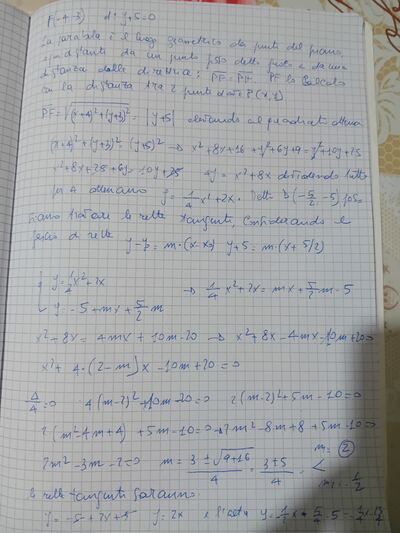 F(-4-3) d: y+5=0
La parabola è il luogo geometrico dei punti del piano
equidistanti da un punto fisso detto fuoco e da una
distanza dalla direttrice; PF = PH. PF lo calcolo
con la distanza tra 2 punti dove P(x,y)
PF = √(x+4)²+(y+3)² = |y+5| elevando al quadrato
(x+4)²+(y+3)²=(y+5)² ⇒ x²+8x+16+y²+6y+9=y²+10y+25
x²+8x+25+6y=10y+25 4y=x²+8x dividendo tutto
per 4 otteniamo y=1/4 x²+2x. B(-5/2,-5)
rette tangenti, considerando il
fascio di rette y-yp=m·(x-xp) y+5=m·(x+5/2)
{ y=1/4 x²+2x ⇒ 1/4 x²+2x=mx+5/2 m-5
y=-5+mx+5/2 m
x²+8x=4mx+10m-20 ⇒ x²+8x-4mx-10m+20=0
x²+4·(2-m)x-10m+20=0
Δ/4=0 4(m-2)²+10m-20=0 2(m-2)²+5m-10=0
2(m²-4m+4)+5m-10=0 → 2m²-8m+8+5m-10=0
2m²-3m-2=0 m=3±√9+16/4=3±5/4 < m=2
m=-1/2
le rette tangenti saranno
y=-5+2x+5 y=2x e l'altra